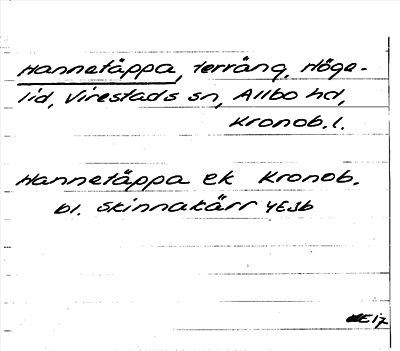 Hannetäppa, terräng, Höge-
lid, Virestads sn, Allbo hd,
Kronob. l.
Hannetäppa ek Kronob.
bl. Skinnakärr 4E3b
E17